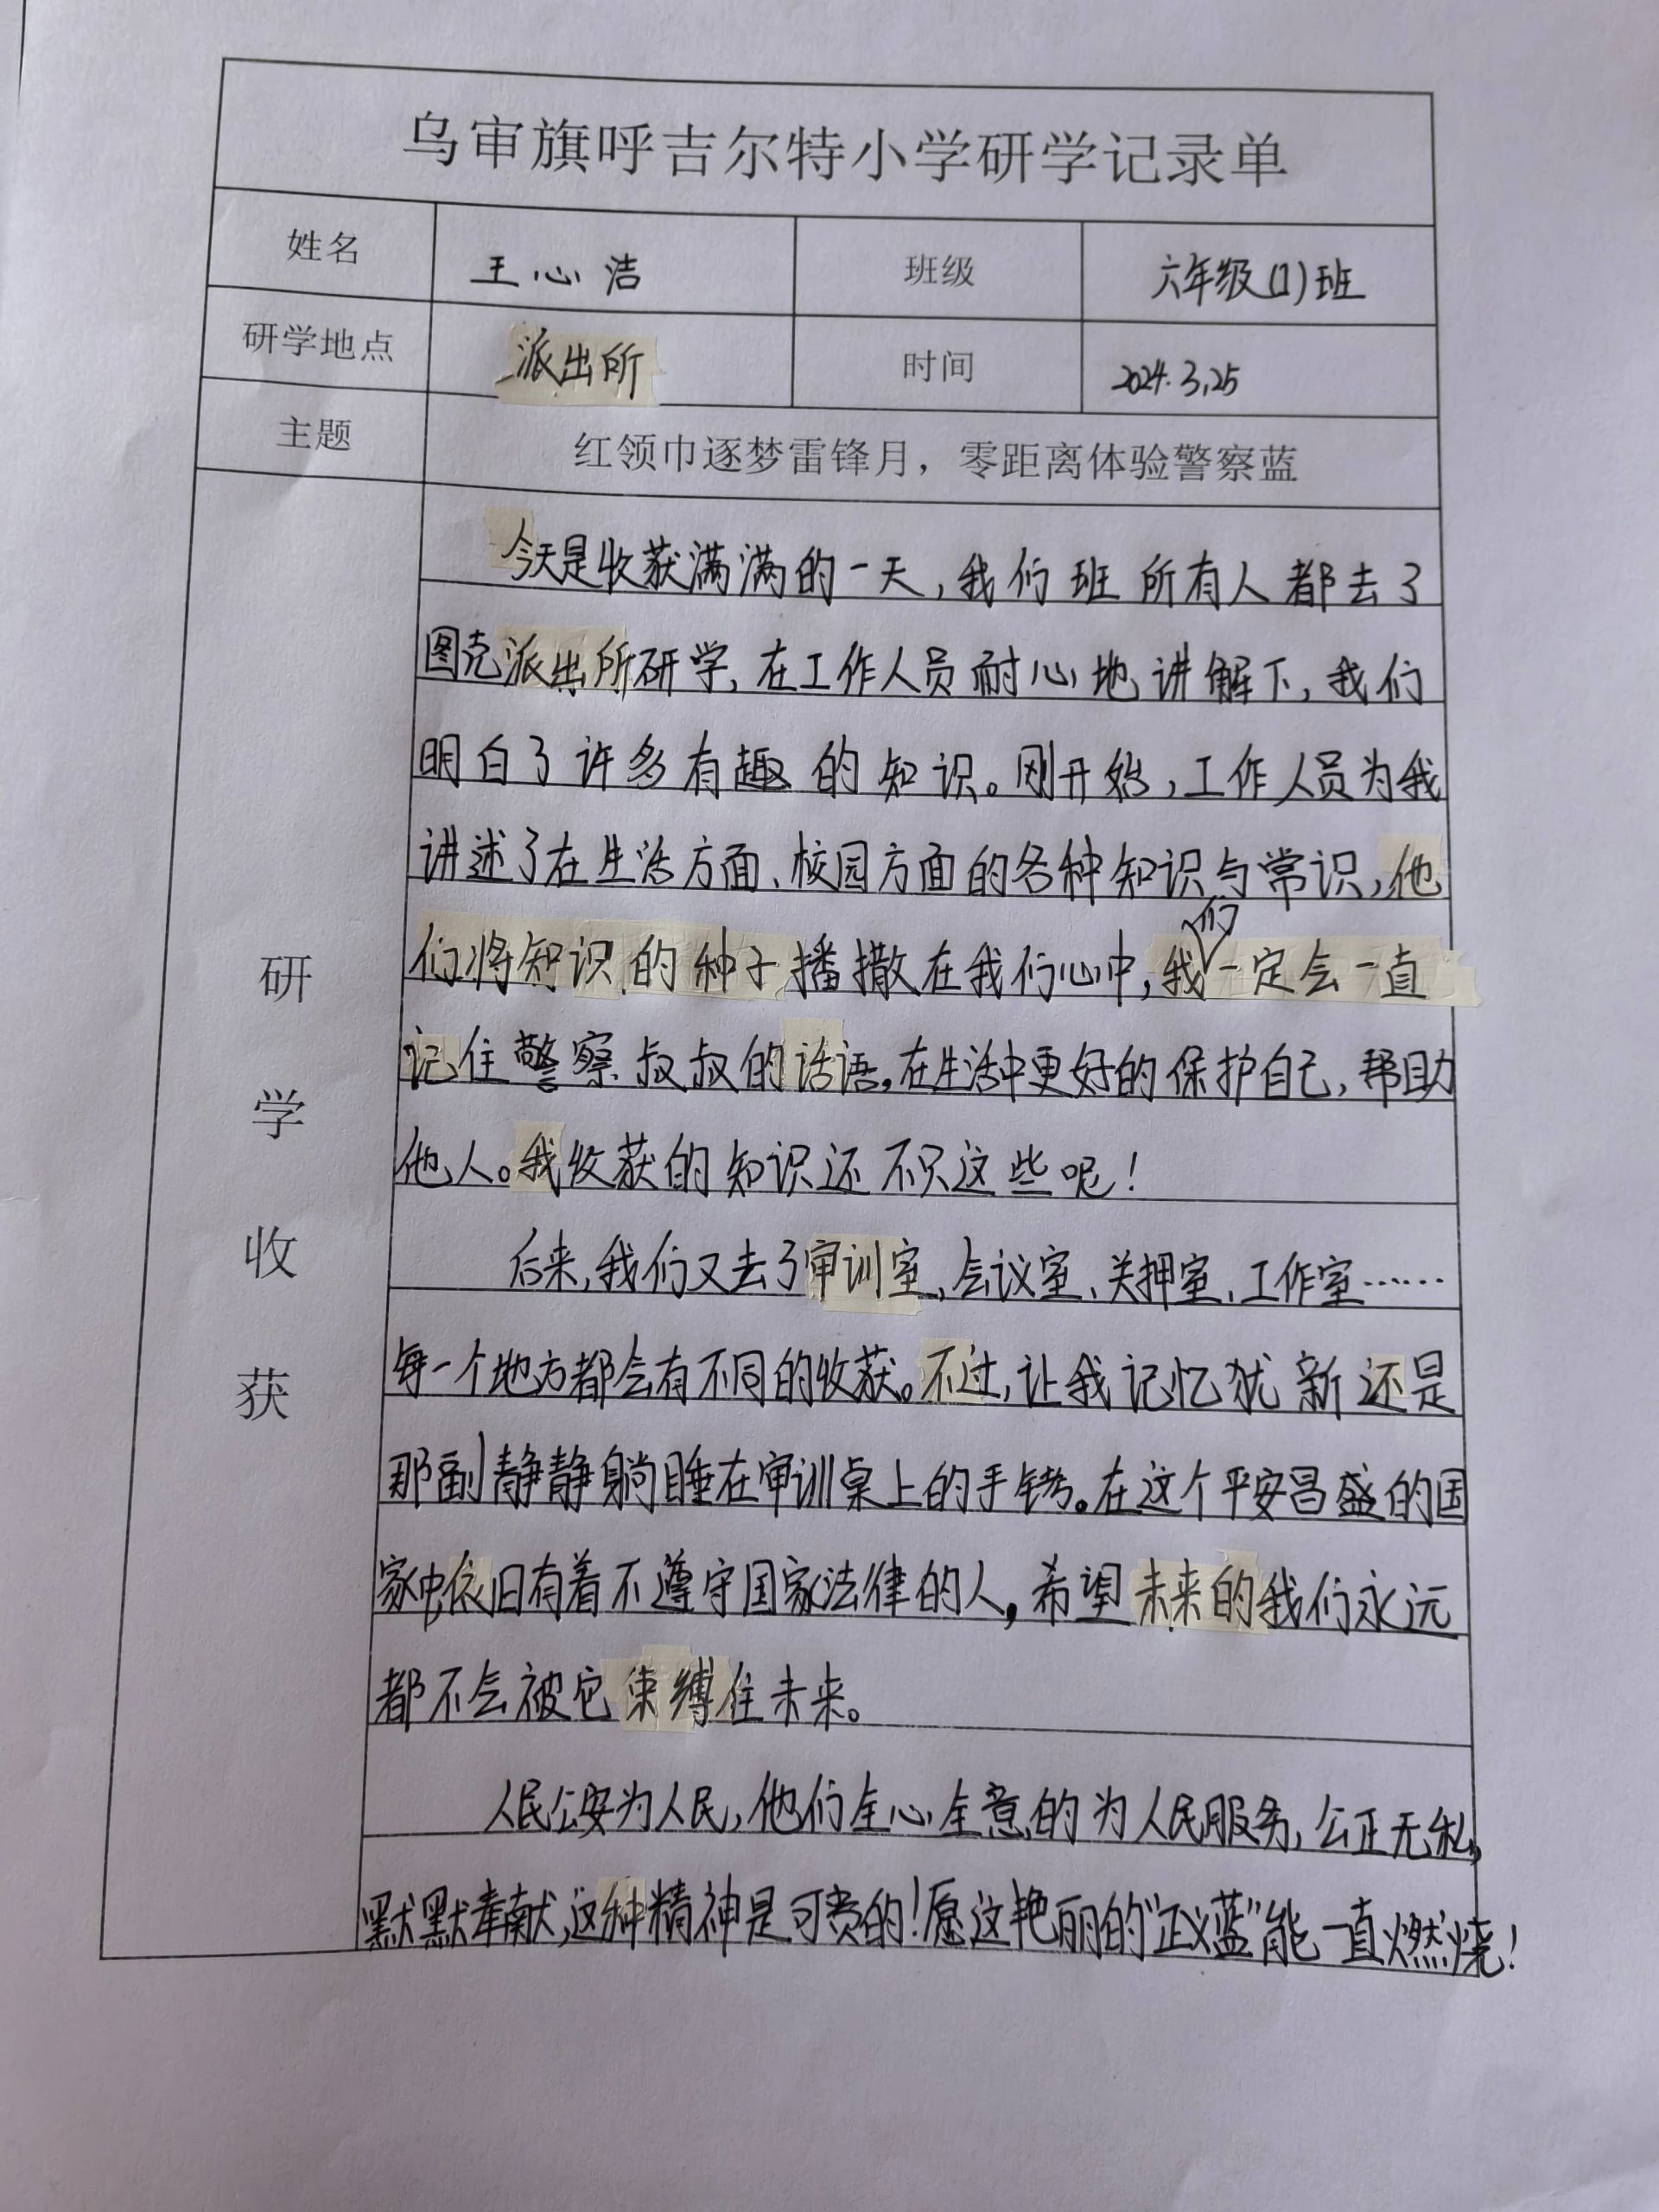 乌审旗呼吉尔特小学研学记录单
姓名 王心洁 班级 六年级(1)班
研学地点 派出所 时间 2024.3.25
主题 红领巾逐梦雷锋月，零距离体验警察蓝
研学收获
今天是收获满满的一天，我们班所有人都去了
图克派出所研学，在工作人员耐心地讲解下，我们
明白了许多有趣的知识。刚开始，工作人员为我
讲述了在生活方面、校园方面的各种知识与常识，他
们将知识的种子播撒在我们心中，我们一定会一直
记住警察叔叔的话语。在生活中更好的保护自己，帮助
他人。我收获的知识还不只这些呢！
后来，我们又去了审训室、会议室、关押室、工作室……
每一个地方都会有不同的收获。不过，让我记忆犹新还是
那副静静躺睡在审训桌上的手铐。在这个平安昌盛的国
家中依旧有着不遵守国家法律的人，希望未来的我们永远
都不会被它束缚住未来。
人民公安为人民，他们全心全意的为人民服务，公正无私，
默默奉献，这种精神是可贵的！愿这艳丽的“正义蓝”能一直燃烧！